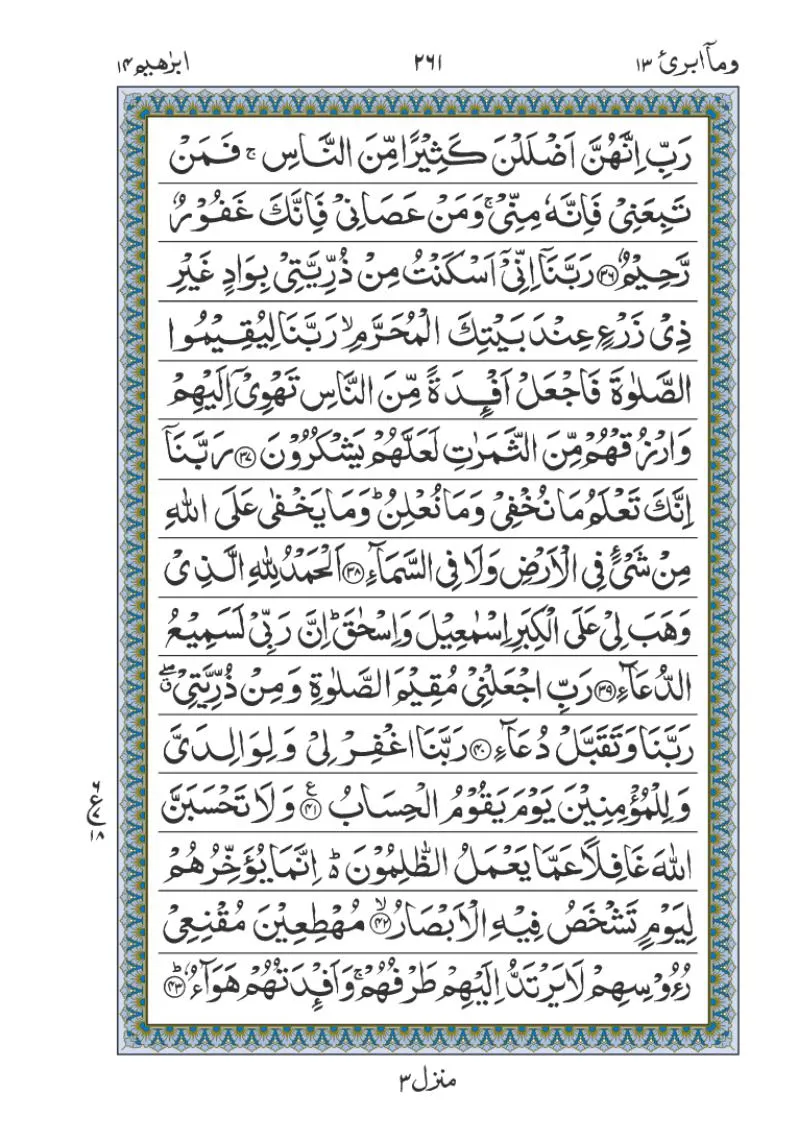 وماۤابرئ ۱۳
۲۶۱
ابرٰهیم ۱۴
رَبِّ اِنَّهُنَّ اَضْلَلْنَ كَثِيْرًا مِّنَ النَّاسِ ۚ فَمَنْ
تَبِعَنِيْ فَاِنَّهٗ مِنِّيْ ۚ وَمَنْ عَصَانِيْ فَاِنَّكَ غَفُوْرٌ
رَّحِيْمٌ ﴿۳۶﴾ رَبَّنَاۤ اِنِّيْۤ اَسْكَنْتُ مِنْ ذُرِّيَّتِيْ بِوَادٍ غَيْرِ
ذِيْ زَرْعٍ عِنْدَ بَيْتِكَ الْمُحَرَّمِ ۙ رَبَّنَا لِيُقِيْمُوا
الصَّلٰوةَ فَاجْعَلْ اَفْـِٕدَةً مِّنَ النَّاسِ تَهْوِيْۤ اِلَيْهِمْ
وَارْزُقْهُمْ مِّنَ الثَّمَرٰتِ لَعَلَّهُمْ يَشْكُرُوْنَ ﴿۳۷﴾ رَبَّنَاۤ
اِنَّكَ تَعْلَمُ مَا نُخْفِيْ وَمَا نُعْلِنُ ؕ وَمَا يَخْفٰى عَلَى اللّٰهِ
مِنْ شَيْءٍ فِي الْاَرْضِ وَلَا فِي السَّمَآءِ ﴿۳۸﴾ اَلْحَمْدُ لِلّٰهِ الَّذِيْ
وَهَبَ لِيْ عَلَى الْكِبَرِ اِسْمٰعِيْلَ وَاِسْحٰقَ ؕ اِنَّ رَبِّيْ لَسَمِيْعُ
الدُّعَآءِ ﴿۳۹﴾ رَبِّ اجْعَلْنِيْ مُقِيْمَ الصَّلٰوةِ وَمِنْ ذُرِّيَّتِيْ ۖۗ
رَبَّنَا وَتَقَبَّلْ دُعَآءِ ﴿۴۰﴾ رَبَّنَا اغْفِرْ لِيْ وَلِوَالِدَيَّ
وَلِلْمُؤْمِنِيْنَ يَوْمَ يَقُوْمُ الْحِسَابُ ﴿۴۱﴾ ع وَلَا تَحْسَبَنَّ
اللّٰهَ غَافِلًا عَمَّا يَعْمَلُ الظّٰلِمُوْنَ ؕ اِنَّمَا يُؤَخِّرُهُمْ
لِيَوْمٍ تَشْخَصُ فِيْهِ الْاَبْصَارُ ﴿۴۲﴾ ۙ مُهْطِعِيْنَ مُقْنِعِيْ
رُءُوْسِهِمْ لَا يَرْتَدُّ اِلَيْهِمْ طَرْفُهُمْ ۚ وَاَفْـِٕدَتُهُمْ هَوَآءٌ ﴿۴۳﴾ ؕ
۶
ع ۷
۱۸
منزل ۳